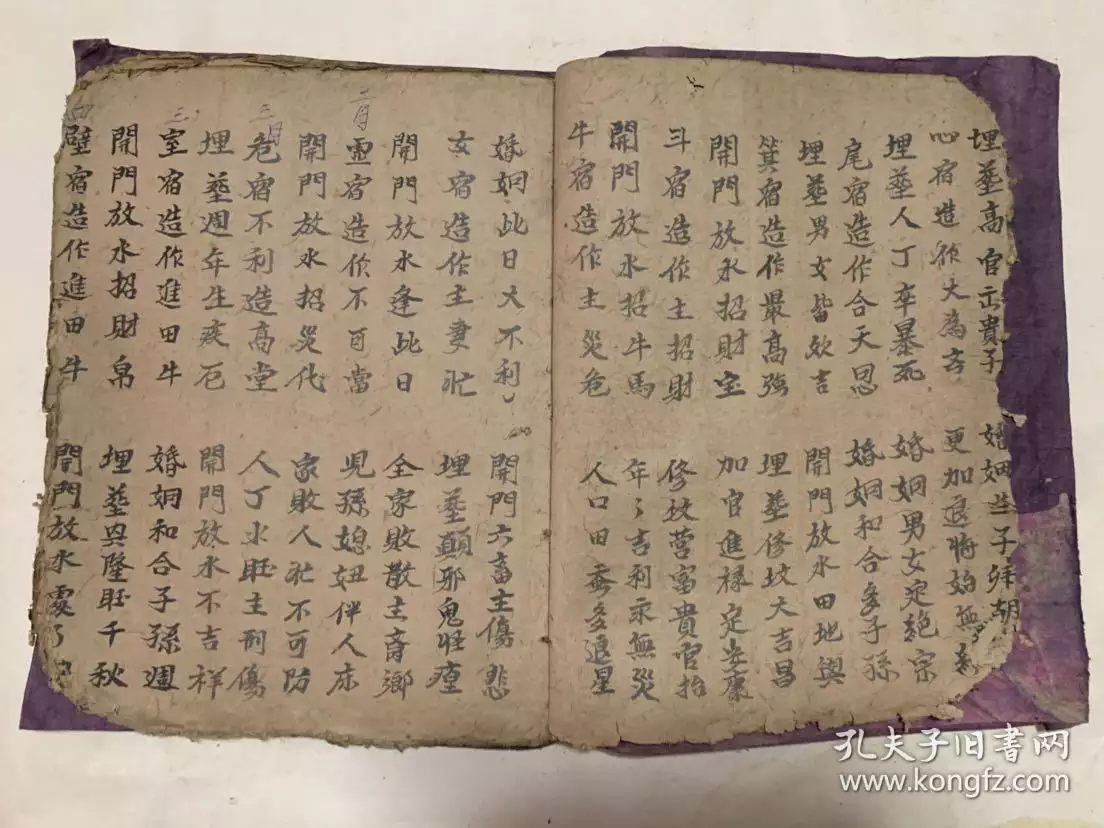 埋塟高官 貴子 婚姻 子
心宿造作大為 更加退將始無
埋塟人丁卒暴死 婚姻男女定絕宗
尾宿造作合天恩 婚姻和合多子孫
埋塟男女皆欢吉 開門放水田地興
箕宿造作最高強 埋塟修坟大吉昌
開門放水招財宝 加官進禄定安康
斗宿造作主招財 修坟营富貴官抬
開門放水招牛馬 年々吉利永無災
牛宿造作主災危 人口田蚕多退星
婚姻此日大不利 開門六畜主傷悲
女宿造作主妻忙 埋塟顛邪鬼怪
開門放水逢此日 全家敗散主 鄉
二月
虚宿造作不可當 児孫媳妞伴人床
開門放水招災代 家敗人忙不可防
三月
危宿不利造高堂 人丁水旺主刑傷
埋塟週年生疾厄 開門放水不吉祥
三
室宿造作進田牛 婚姻和合子孫週
開門放水招財帛 埋塟興隆旺千秋
壁宿造作進田牛 開門放水
孔夫子旧书网
www.kongfz.com